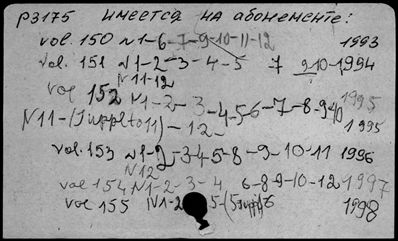 р3175 имеется на абонементе:
vol. 150 N1-6-7-9-10-11-12 1993
vol. 151 N1-2-3-4-5 7 9-10-1994
N11-12
vol 152 N1-2-3-4-5-6-7-8-9-10 1995
N11-(Supplto11)-12- 1995
vol. 153 N1-2-3-4-5-8-9-10-11 1996
N12
vol 154 N1-2-3-4 6-8-9-10-12 1997
vol 155 N1-2 5-(5suppl)6 1998